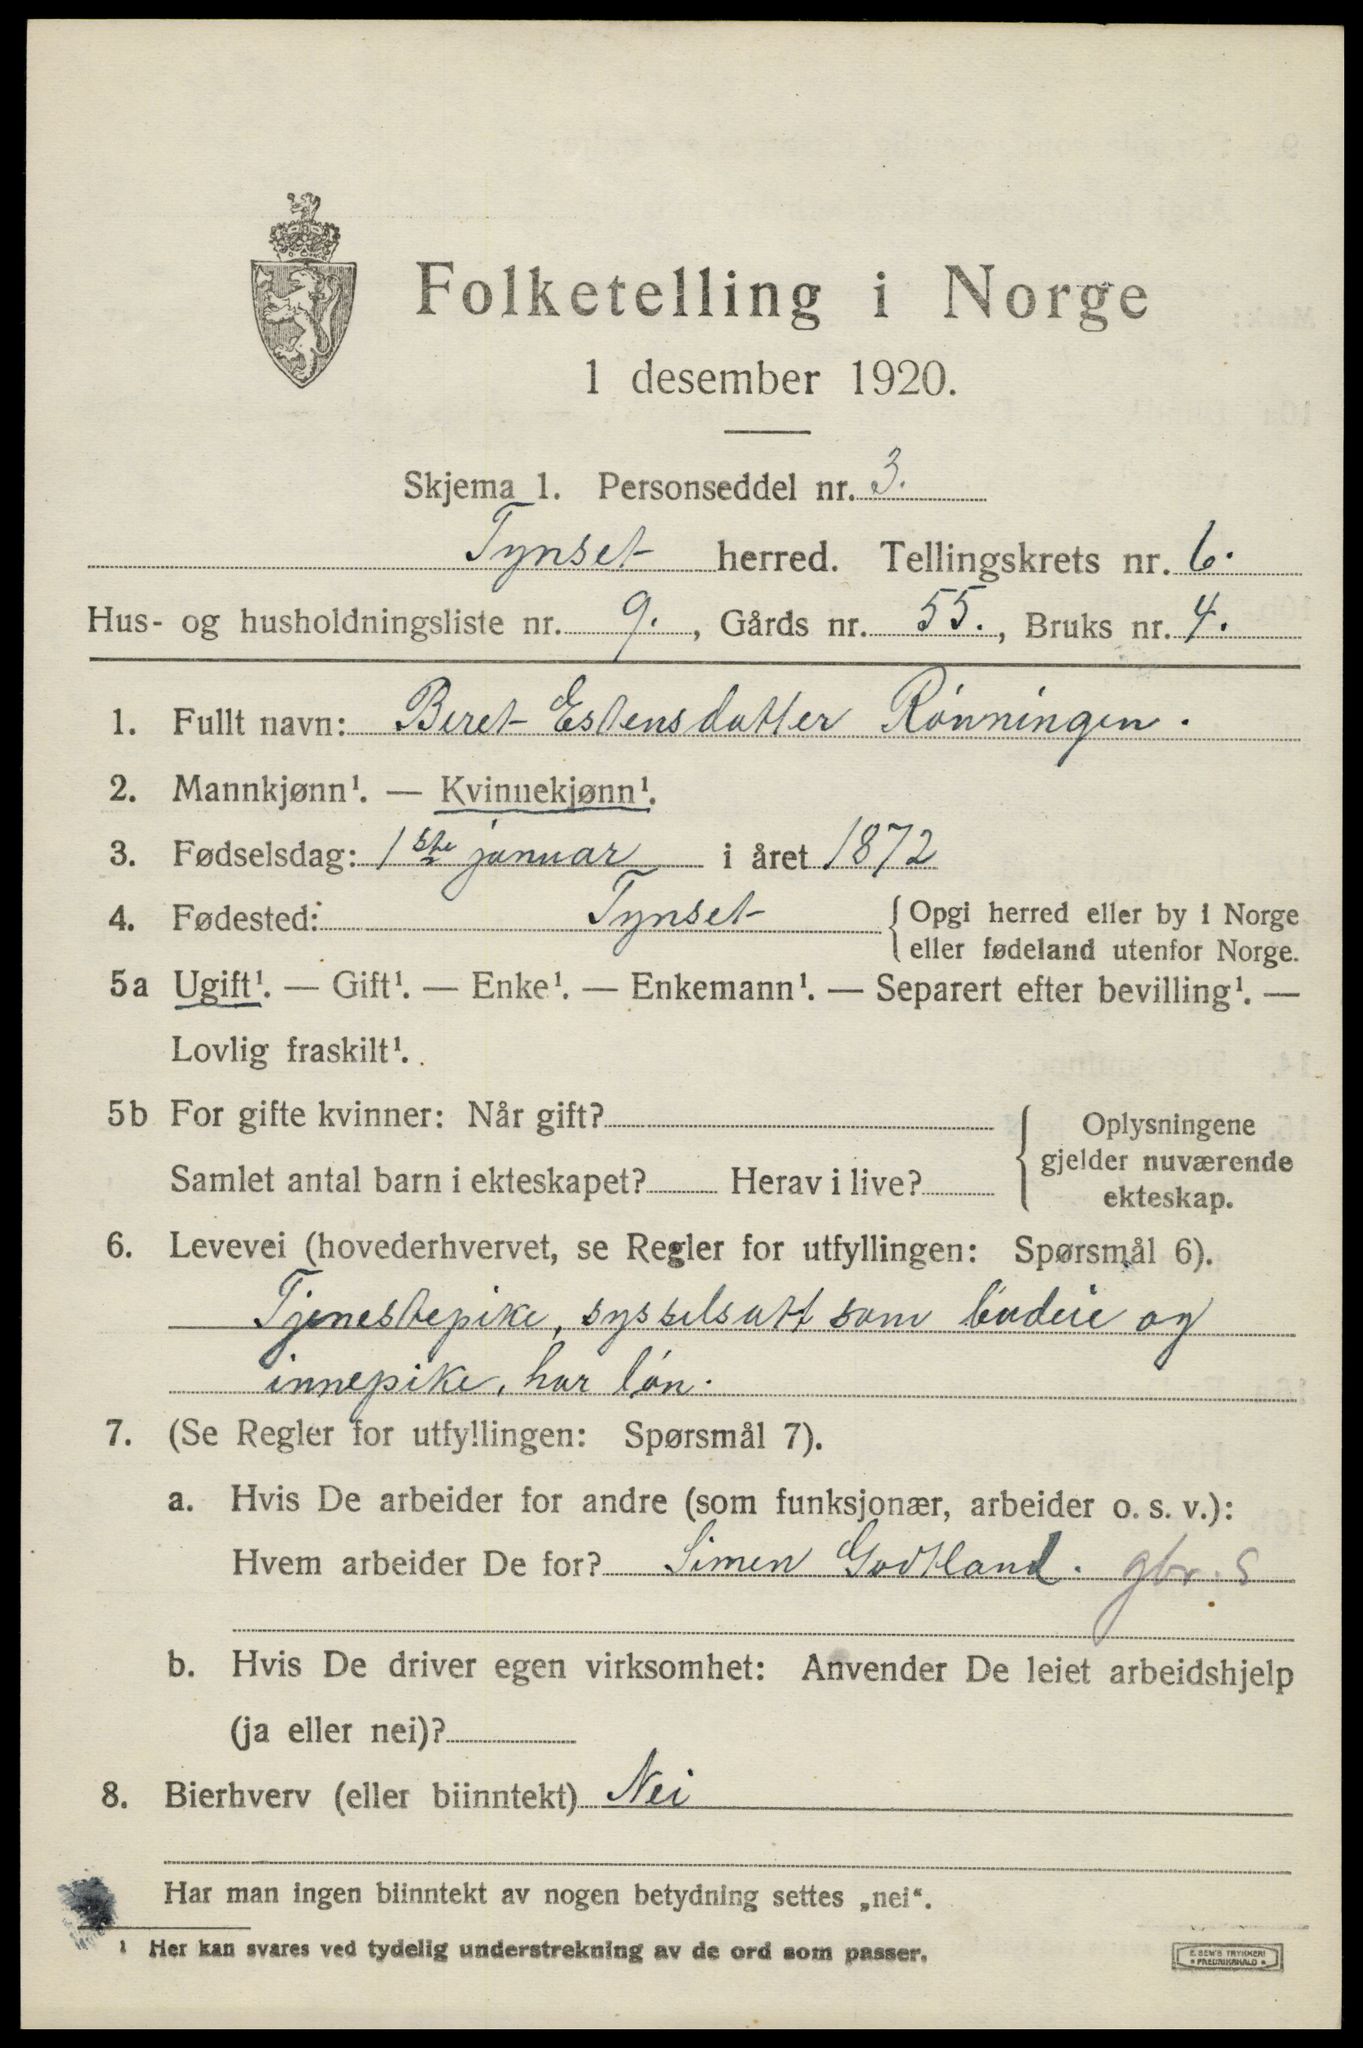 Folketelling i Norge
1 desember 1920.
Skjema 1. Personseddel nr. 3.
Tynset herred. Tellingskrets nr. 6.
Hus- og husholdningsliste nr. 9., Gårds nr. 55., Bruks nr. 4.
1. Fullt navn: Beret Estensdatter Rønningen.
2. Mannkjønn¹. — Kvinnekjønn¹.
3. Fødselsdag: 1ste januar i året 1872
4. Fødested: Tynset { Opgi herred eller by i Norge
eller fødeland utenfor Norge.
5a Ugift¹. — Gift¹. — Enke¹. — Enkemann¹. — Separert efter bevilling¹. —
Lovlig fraskilt¹.
5b For gifte kvinner: Når gift?
Samlet antal barn i ekteskapet? Herav i live?
{ Oplysningene
gjelder nuværende
ekteskap.
6. Levevei (hovederhvervet, se Regler for utfyllingen: Spørsmål 6).
Tjenestepike, sysselsatt som budeie og
innepike, har løn.
7. (Se Regler for utfyllingen: Spørsmål 7).
a. Hvis De arbeider for andre (som funksjonær, arbeider o. s. v.):
Hvem arbeider De for? Simen Godtland. gbr. S
b. Hvis De driver egen virksomhet: Anvender De leiet arbeidshjelp
(ja eller nei)?
8. Bierhverv (eller biinntekt) Nei
Har man ingen biinntekt av nogen betydning settes „nei“.
¹ Her kan svares ved tydelig understrekning av de ord som passer.
E. SEM'S TRYKKERI
* FREDRIKSHALD *